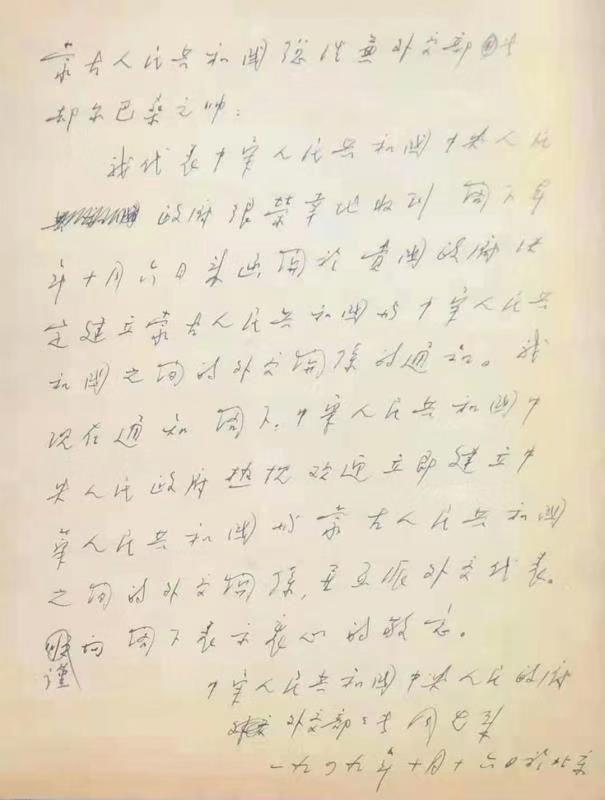 蒙古人民共和國總理兼外交部長
却尔巴桑元帅:
我代表中華人民共和國中央人民
政府很荣幸地收到阁下本
年十月六日来电,關於貴國政府决
定建立蒙古人民共和國与中華人民共
和國之间的外交關係的通知。我
现在通知阁下,中華人民共和國中
央人民政府热忱欢迎立即建立中
華人民共和國与蒙古人民共和國
之间的外交關係,並互派外交代表。
谨向阁下表示衷心的敬意。
中華人民共和國中央人民政府
外交部部长周恩来
一九四九年十月十六日於北京